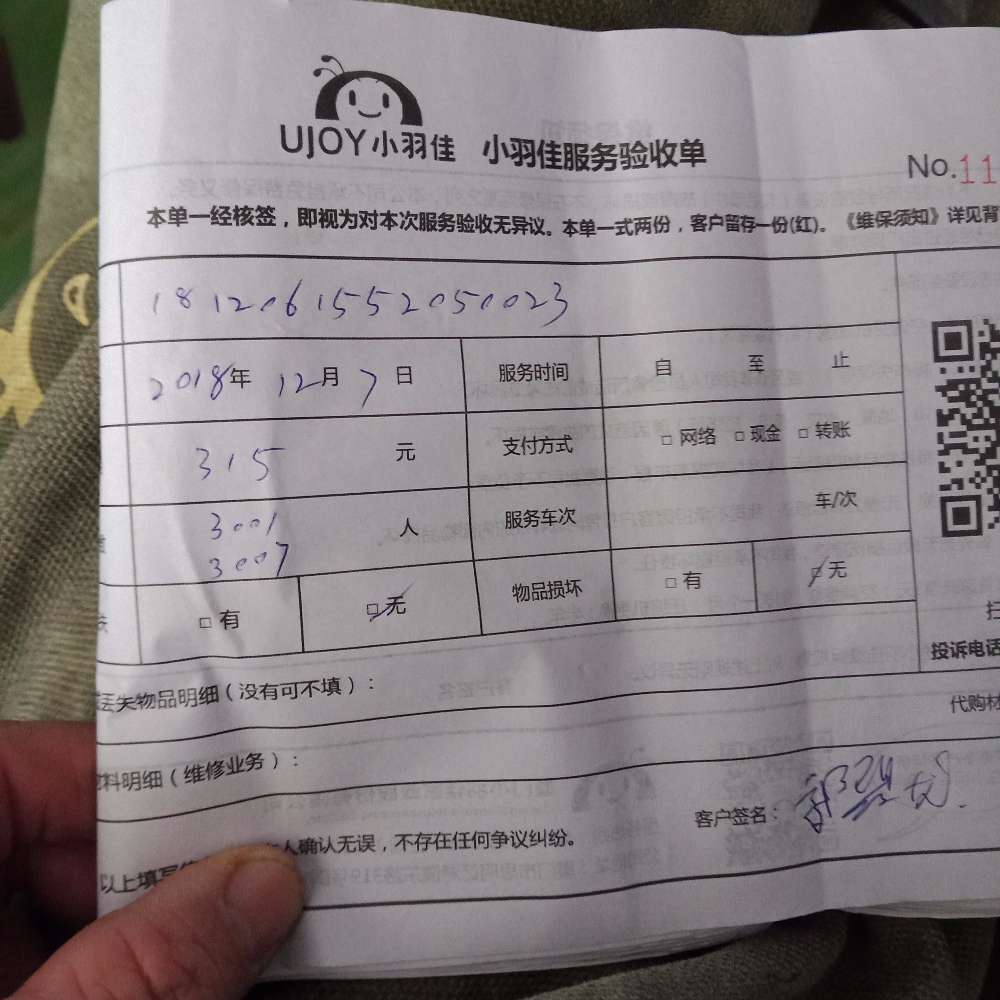 UJOY小羽佳 小羽佳服务验收单
No.11
本单一经核签，即视为对本次服务验收无异议。本单一式两份，客户留存一份(红)。《维保须知》详见背
1812061552050023
2018年 12月 7日 服务时间 自 至 止
315 元 支付方式 □ 网络 □ 现金 □ 转账
3001
3007 人 服务车次 车/次
□ 有 □ 无 物品损坏 □ 有 □ 无
投诉电话
丢失物品明细（没有可不填）：
代购材
料明细（维修业务）：
客户签名：
以上填写 人确认无误，不存在任何争议纠纷。